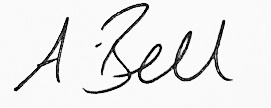 A Bell